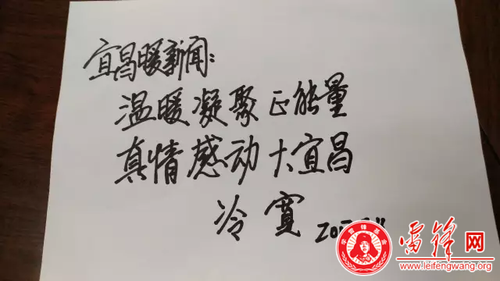 宜昌暖新闻:
温暖凝聚正能量
真情感动大宜昌
冷宽
雷锋网
www.leifengwang.org